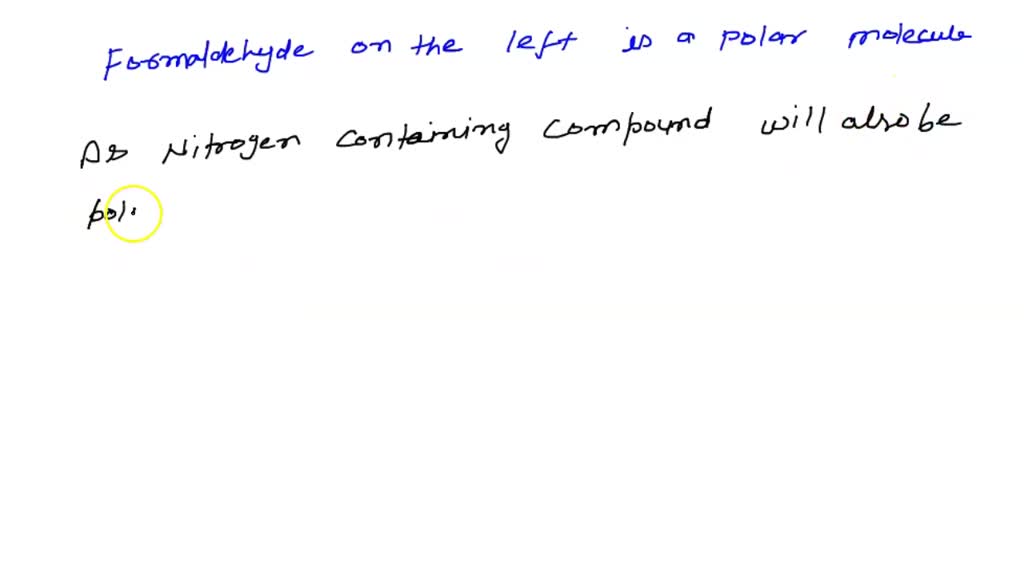 Formaldehyde on the left is a polar molecule
As Nitrogen containing compound will also be
pol